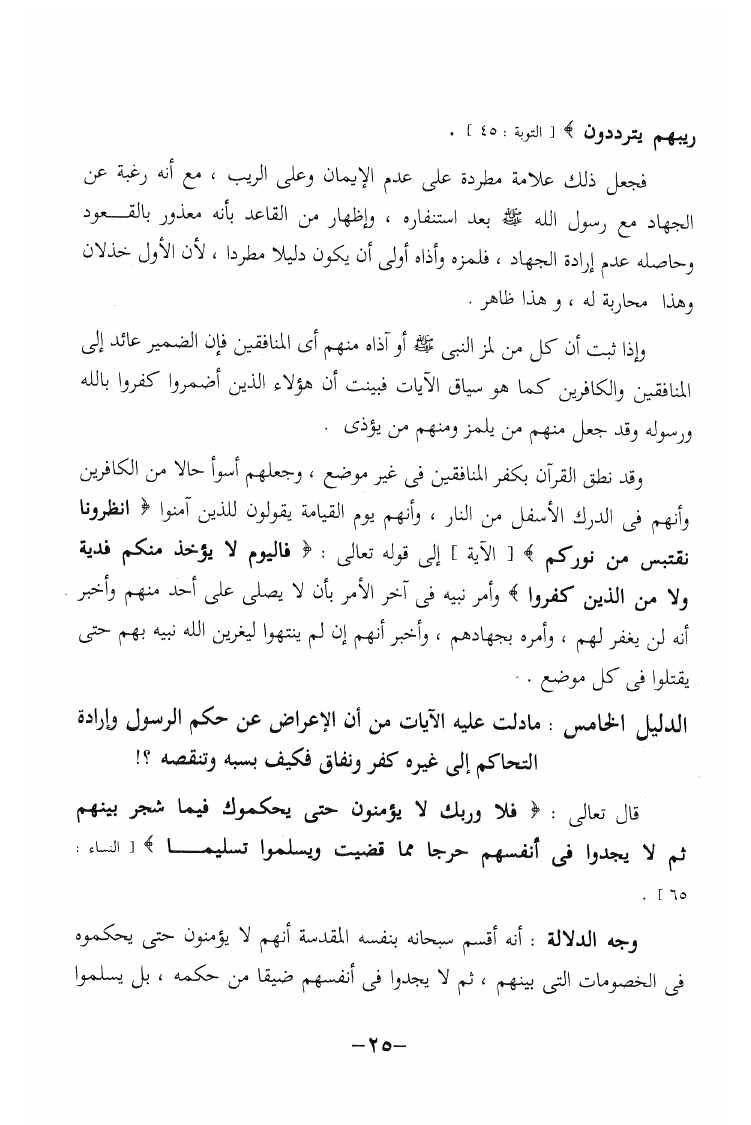 ريبهم يترددون ﴾ [ التوبة : ٤٥ ] .
فجعل ذلك علامة مطردة على عدم الإيمان وعلى الريب ، مع أنه رغبة عن
الجهاد مع رسول الله ﷺ بعد استنفاره ، وإظهار من القاعد بأنه معذور بالقـــعود
وحاصله عدم إرادة الجهاد ، فلمزه وأذاه أولى أن يكون دليلا مطردا ، لأن الأول خذلان
وهذا محاربة له ، و هذا ظاهر .
وإذا ثبت أن كل من لمز النبى ﷺ أو آذاه منهم أى المنافقين فإن الضمير عائد إلى
المنافقين والكافرين كما هو سياق الآيات فبينت أن هؤلاء الذين أضمروا كفروا بالله
ورسوله وقد جعل منهم من يلمز ومنهم من يؤذى .
وقد نطق القرآن بكفر المنافقين فى غير موضع ، وجعلهم أسوأ حالا من الكافرين
وأنهم فى الدرك الأسفل من النار ، وأنهم يوم القيامة يقولون للذين آمنوا ﴿ انظرونا
نقتبس من نوركم ﴾ [ الآية ] إلى قوله تعالى : ﴿ فاليوم لا يؤخذ منكم فدية
ولا من الذين كفروا ﴾ وأمر نبيه فى آخر الأمر بأن لا يصلى على أحد منهم وأخبر
أنه لن يغفر لهم ، وأمره بجهادهم ، وأخبر أنهم إن لم ينتهوا ليغرين الله نبيه بهم حتى
يقتلوا فى كل موضع .
الدليل الخامس : مادلت عليه الآيات من أن الإعراض عن حكم الرسول وإرادة
التحاكم إلى غيره كفر ونفاق فكيف بسبه وتنقصه ؟!
قال تعالى : ﴿ فلا وربك لا يؤمنون حتى يحكموك فيما شجر بينهم
ثم لا يجدوا فى أنفسهم حرجا مما قضيت ويسلموا تسليمـــا ﴾ [ النساء :
٦٥ ] .
وجه الدلالة : أنه أقسم سبحانه بنفسه المقدسة أنهم لا يؤمنون حتى يحكموه
فى الخصومات التى بينهم ، ثم لا يجدوا فى أنفسهم ضيقا من حكمه ، بل يسلموا
–٢٥–